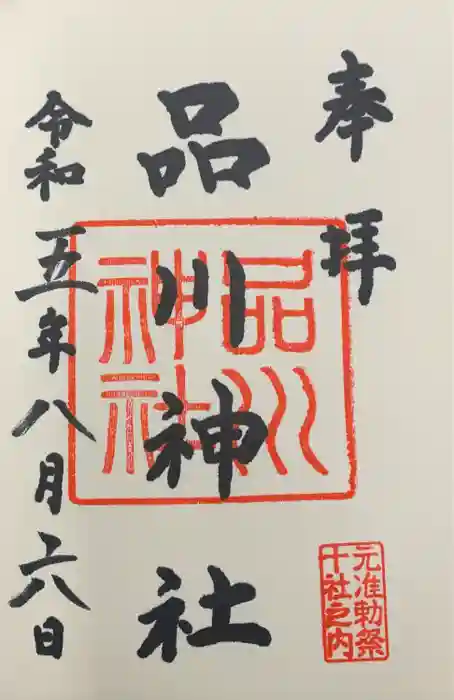 奉拝
品川神社
令和五年八月六日
品川
神社
元准勅祭
十社之内